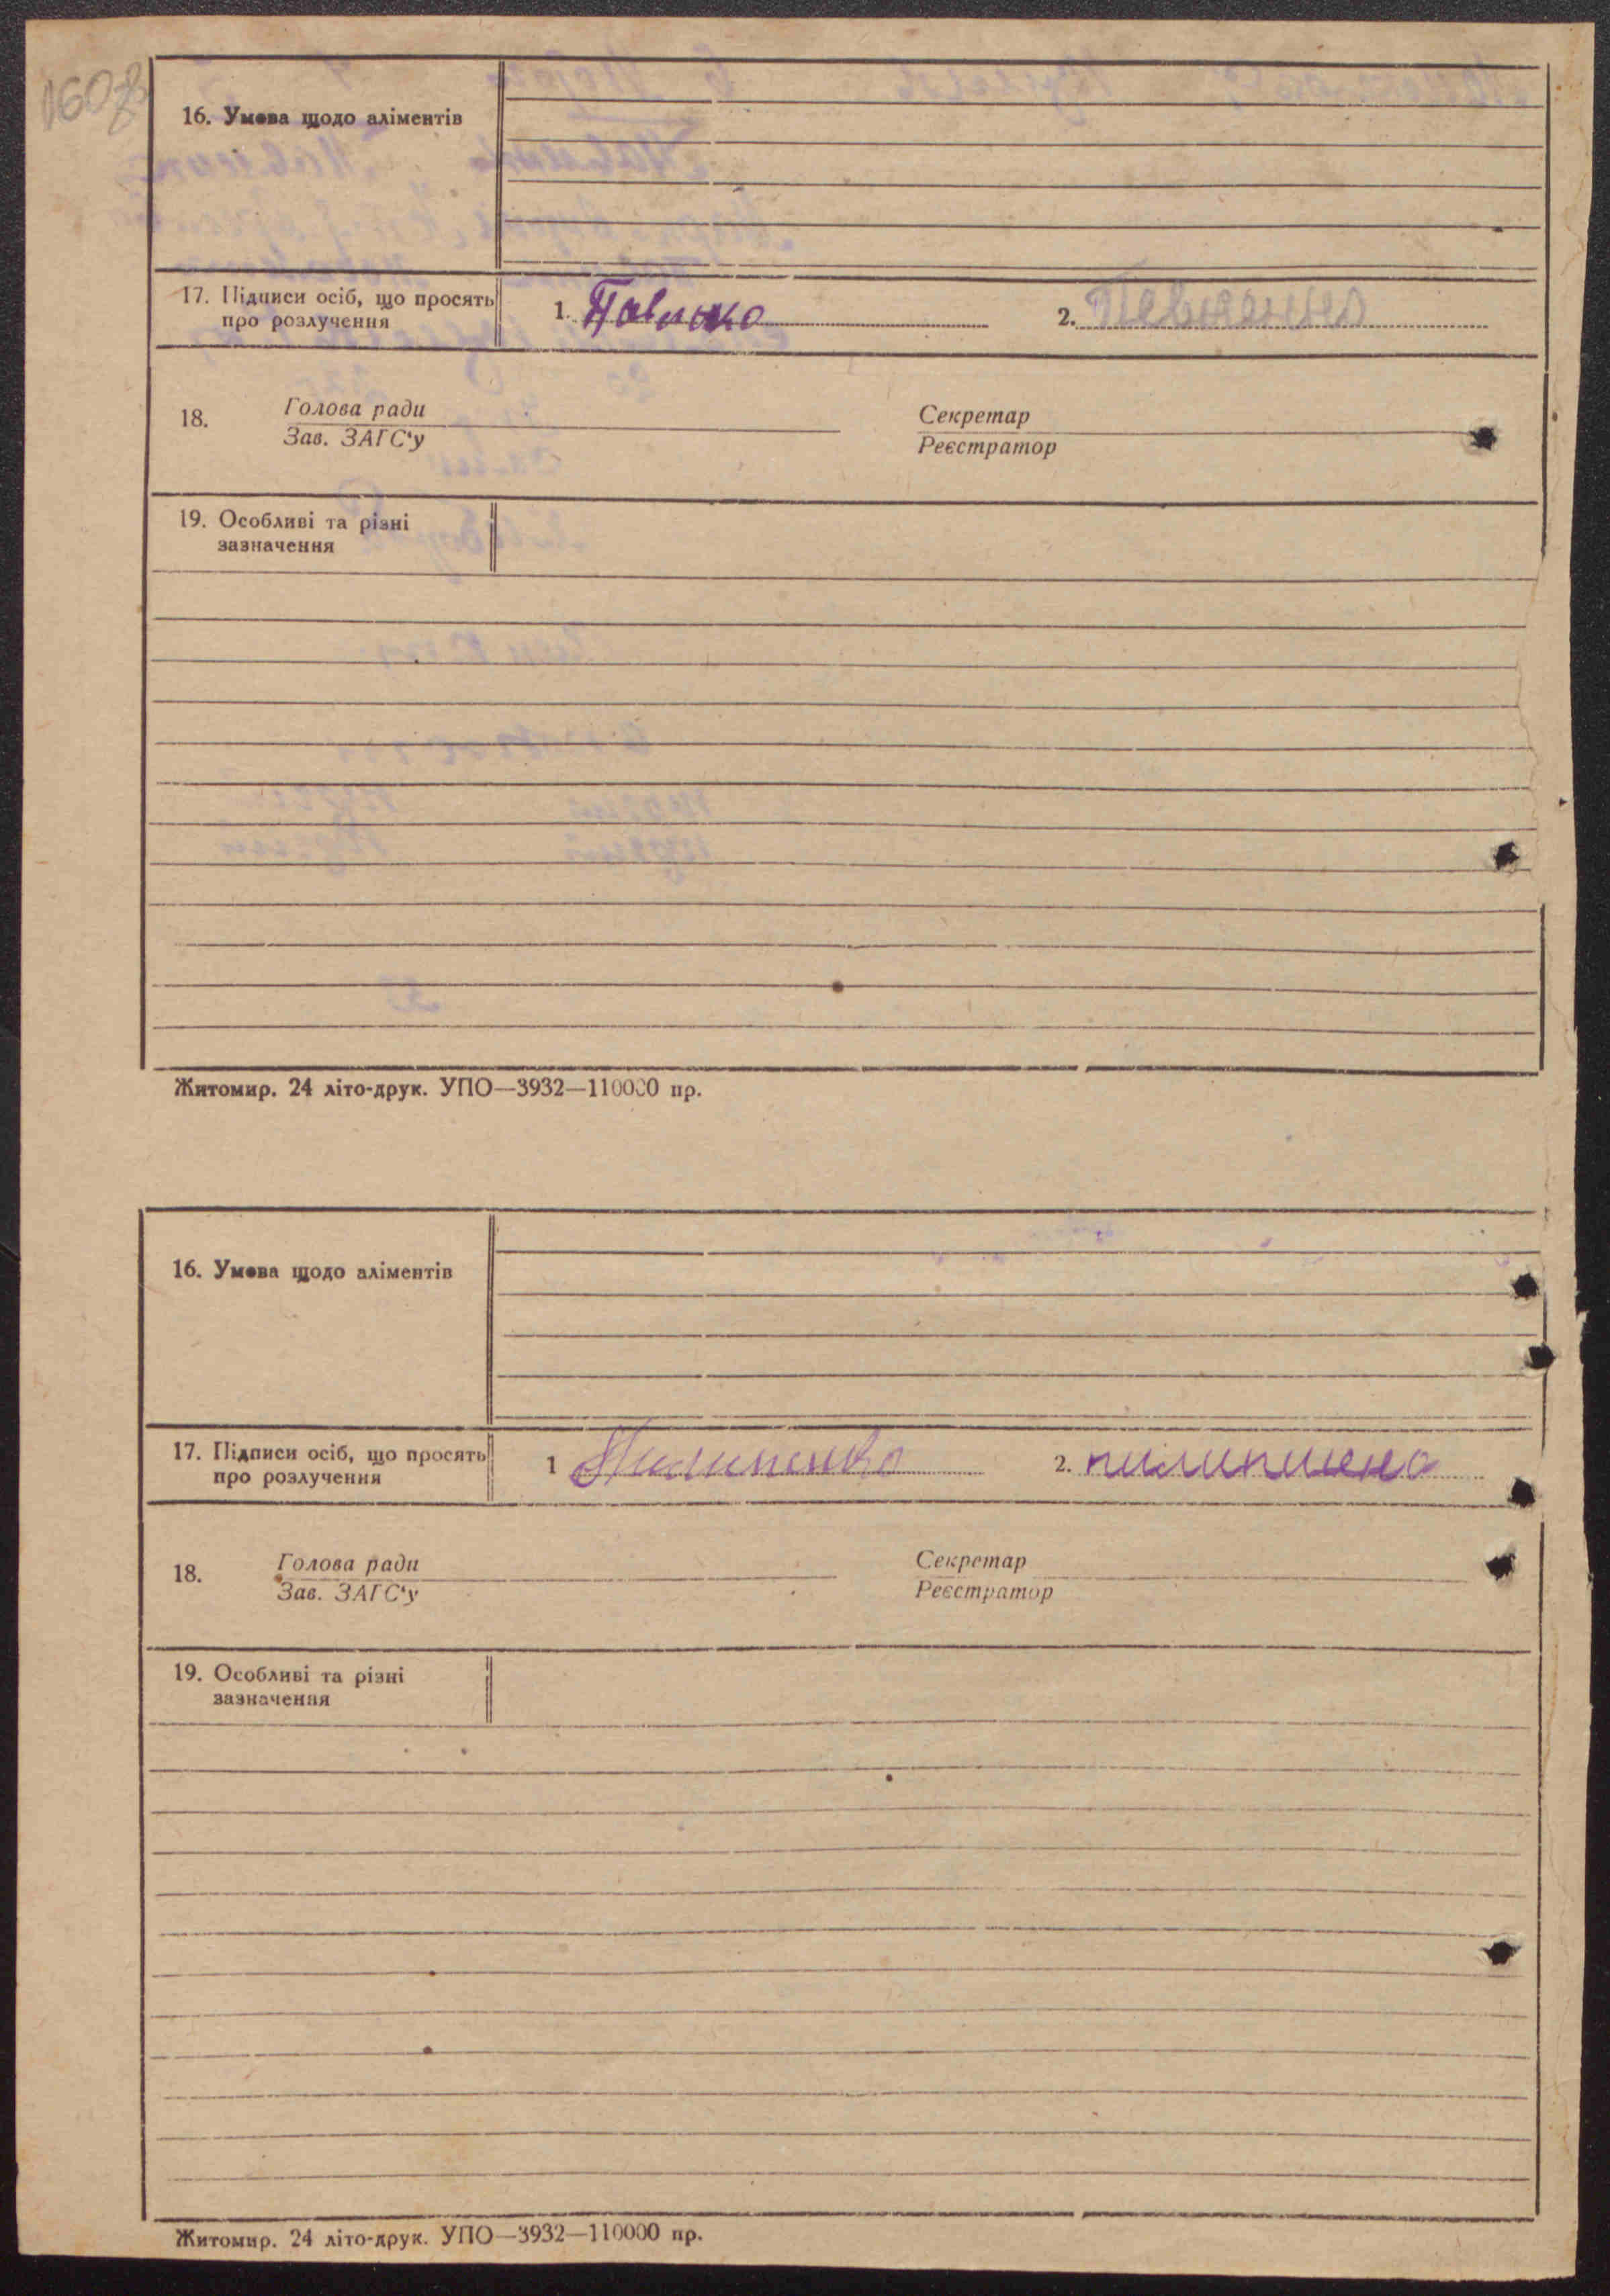 160 зв
16. Умова щодо аліментів
17. Підписи осіб, що просять про розлучення
1. Павлюко
2.
18. Голова ради
Зав. ЗАГС'у
Секретар
Реєстратор
19. Особливі та різні
зазначення
Житомир. 24 літо-друк. УПО—3932—110000 пр.
16. Умова щодо аліментів
17. Підписи осіб, що просять
про розлучення
1 Пилипенко
2. пилипшено
18. Голова ради
Зав. ЗАГС'у
Секретар
Реєстратор
19. Особливі та різні
зазначення
Житомир. 24 літо-друк. УПО—3932—110000 пр.